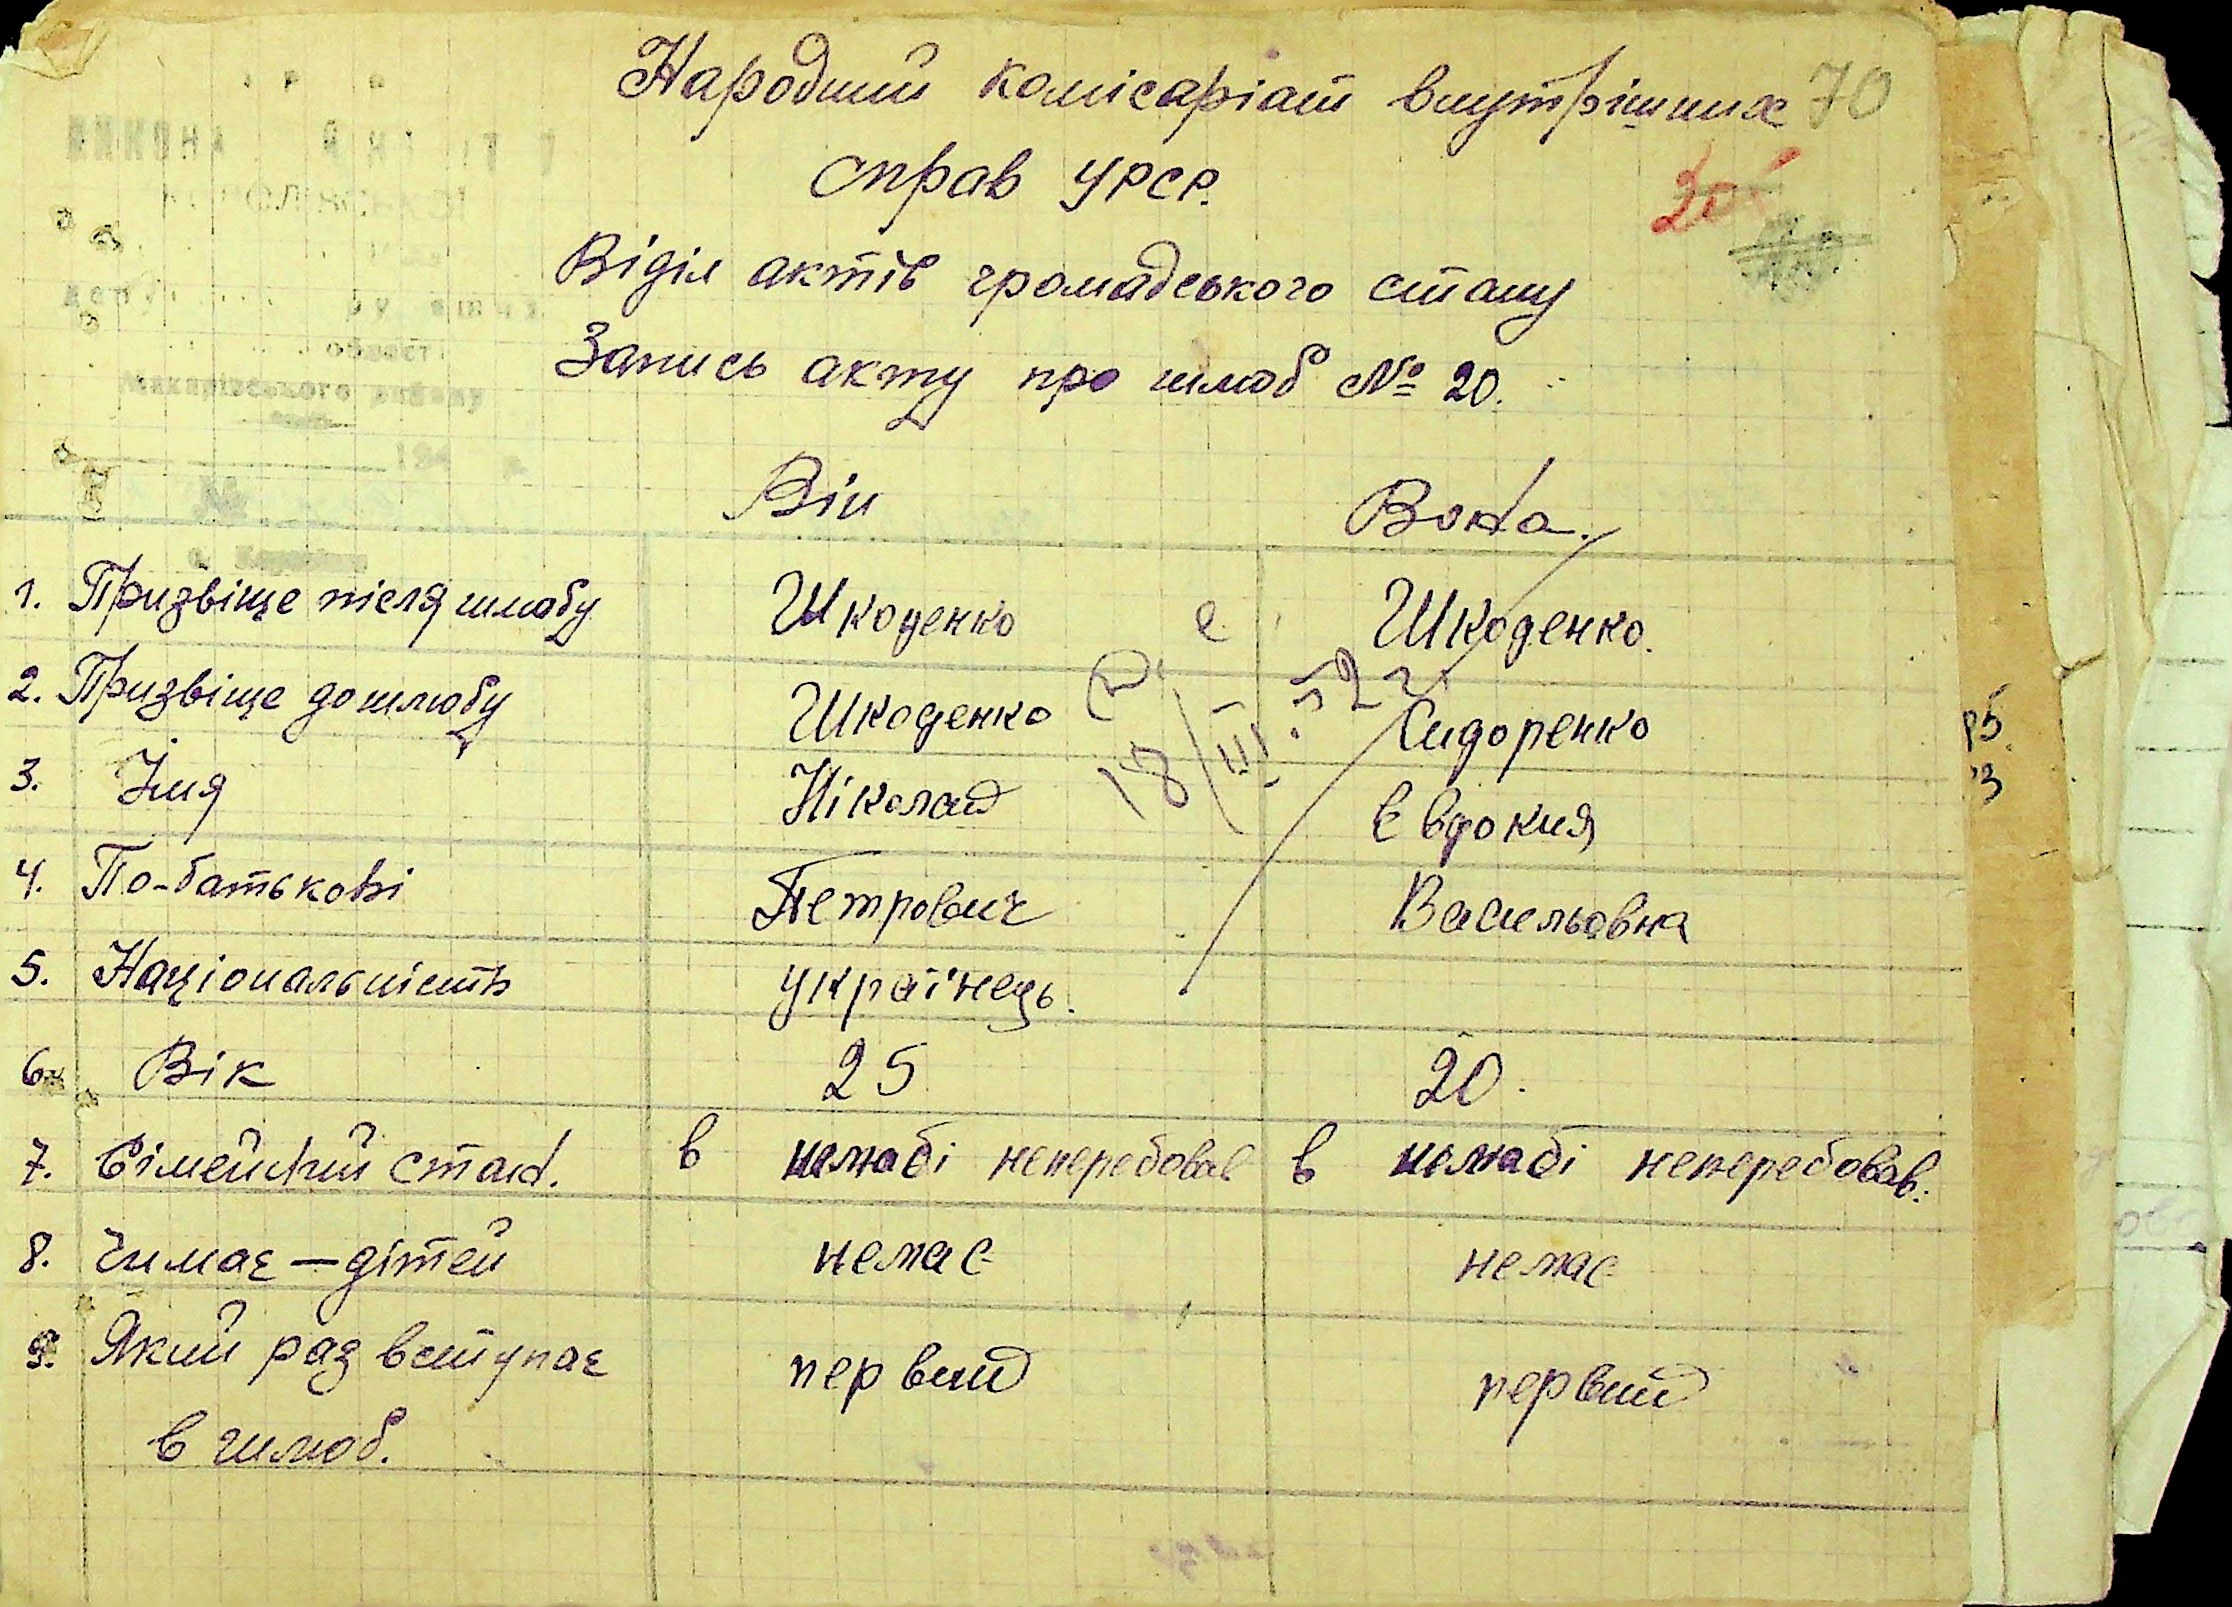 Народний комісаріат внутрішних 70
справ УРСР.
20
Відділ актів громадського стану
Запись акту про шлюб № 20.
області
Макарівського району
194
№
Він Вона.
1. Призвіще після шлюбу Шкоденко Шкоденко.
2. Призвіще до шлюбу Шкоденко Сидоренко
18/III.52 г.
3. Імя Ніколай Євдокия
4. По-батькові Петрович Васильовна
5. Національність українець.
6. Вік 25 20.
7. Сімейний стан. в шлюбі неперебовав в шлюбі неперебовав.
8. Чи має — дітей немає немає
9. Який раз вступає первий первий
в шлюб.